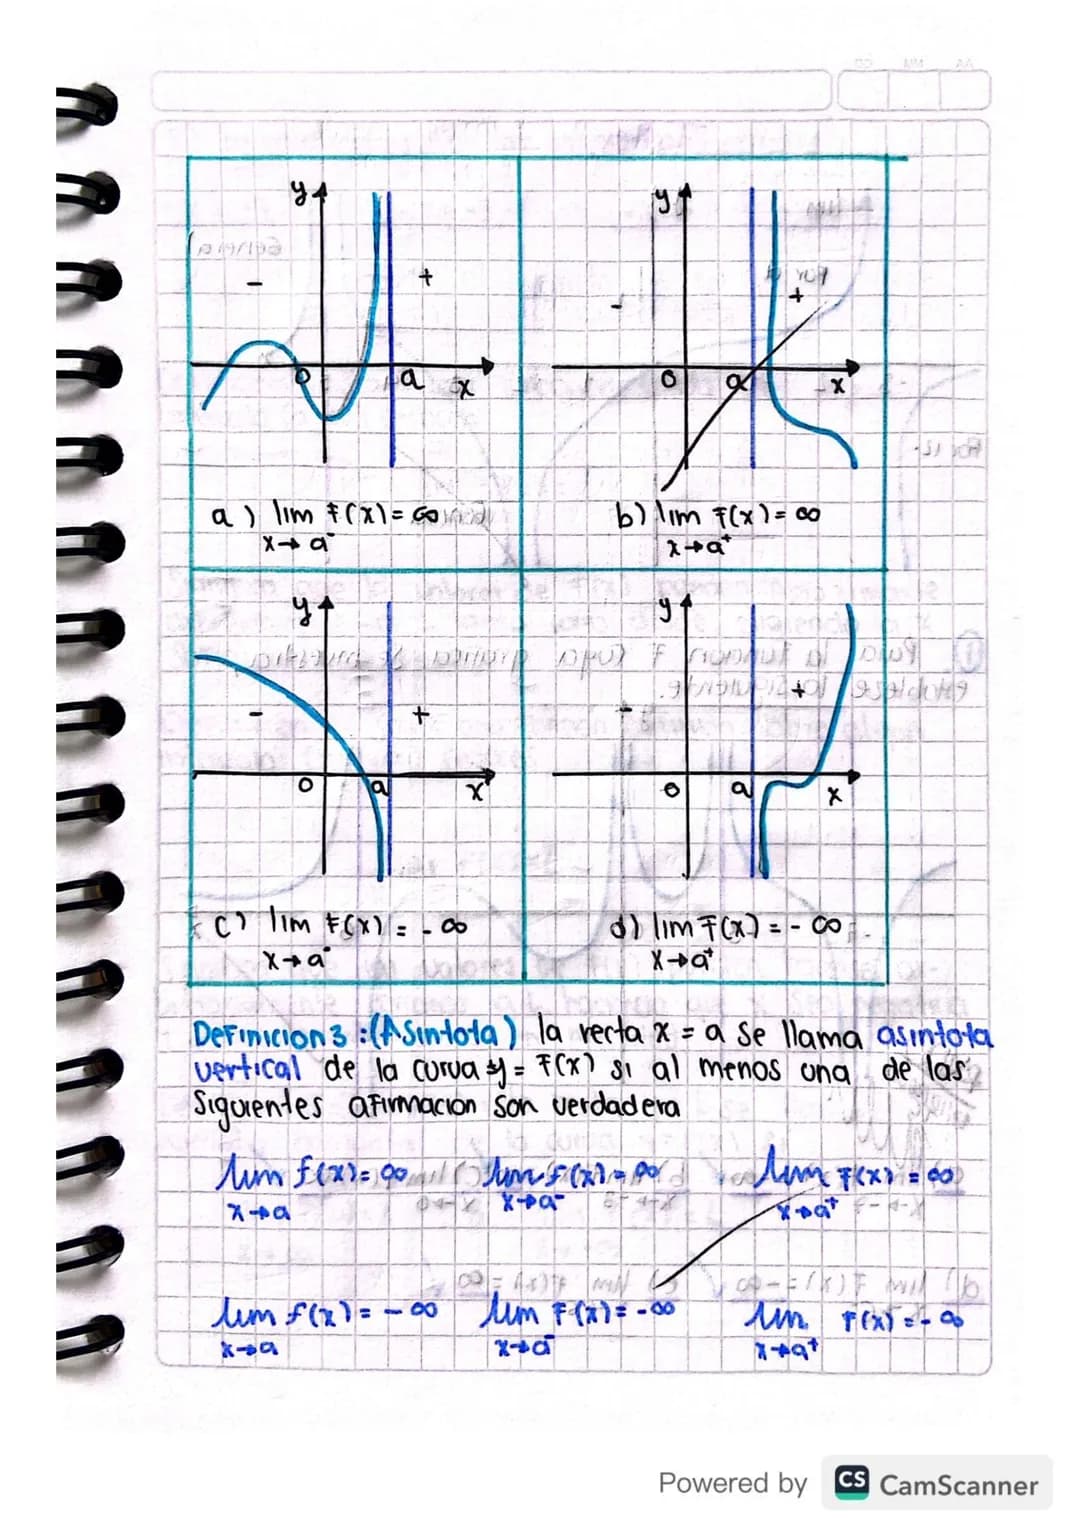 y
-
+
0
a
x
a) lim f(x)= ∞
x→a⁻
y
-
+
0
a
x
b) lim f(x)= ∞
x→a⁺
y
-
+
0
a
x
c) lim f(x) = -∞
x→a⁻
y
-
+
0
a
x
d) lim f(x) = - ∞
x→a⁺
Definicion 3 :(Asintota) la recta x = a se llama asintota
vertical de la curva y = f(x) si al menos una de las
siguientes afirmacion son verdadera
lim f(x)= ∞ lim f(x) = ∞ lim f(x) = ∞
x→a x→a⁻ x→a⁺
lim f(x) = - ∞ lim f(x) = -∞ lim f(x) = - ∞
x→a x→a⁻ x→a⁺
Powered by CS CamScanner